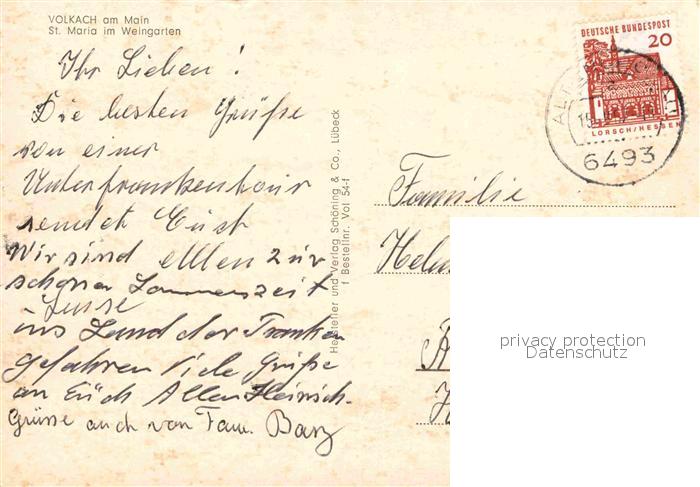 VOLKACH am Main
St. Maria im Weingarten
Ihr Lieben!
Die besten Grüße
von einer
Unterfrankentour
sendet Euch
Luise
Wir sind allen zur
schönen Sommerszeit
ins Land der Franken
gefahren Viele Grüße
an Euch Allen Heinrich
Grüsse auch von Fam. Barz
Hersteller und Verlag Schöning & Co., Lübeck
f Bestellnr. Vol 54-f
DEUTSCHE BUNDESPOST
20
LORSCH/HESSEN
6493
Familie
privacy protection
Datenschutz